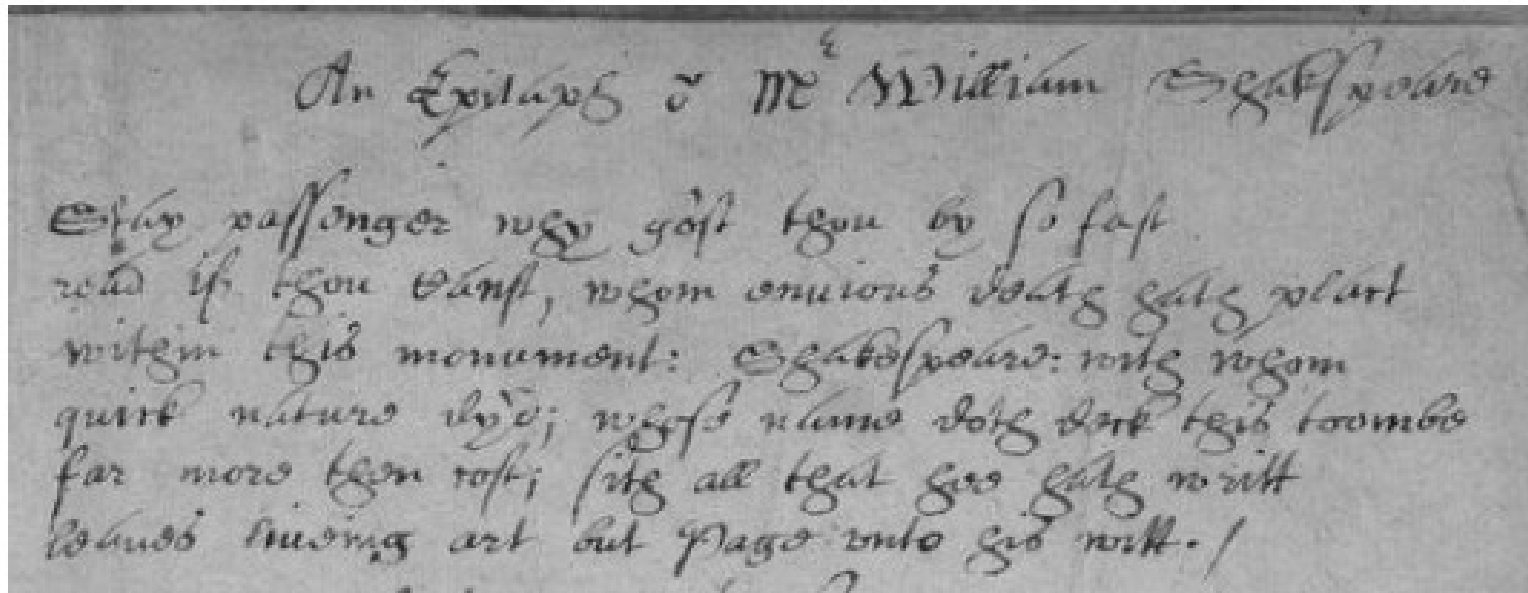 An Epitaph ō Mr William Shakspeare
Stay passenger why gost thou by so fast
read if thou canst, whom envious death hath plact
within this monument: Shakespeare: with whom
quick nature dy'd; whose name doth deck this toombe
far more then cost; sith all that hee hath writt
leaves liueing art but Page vnto his witt./